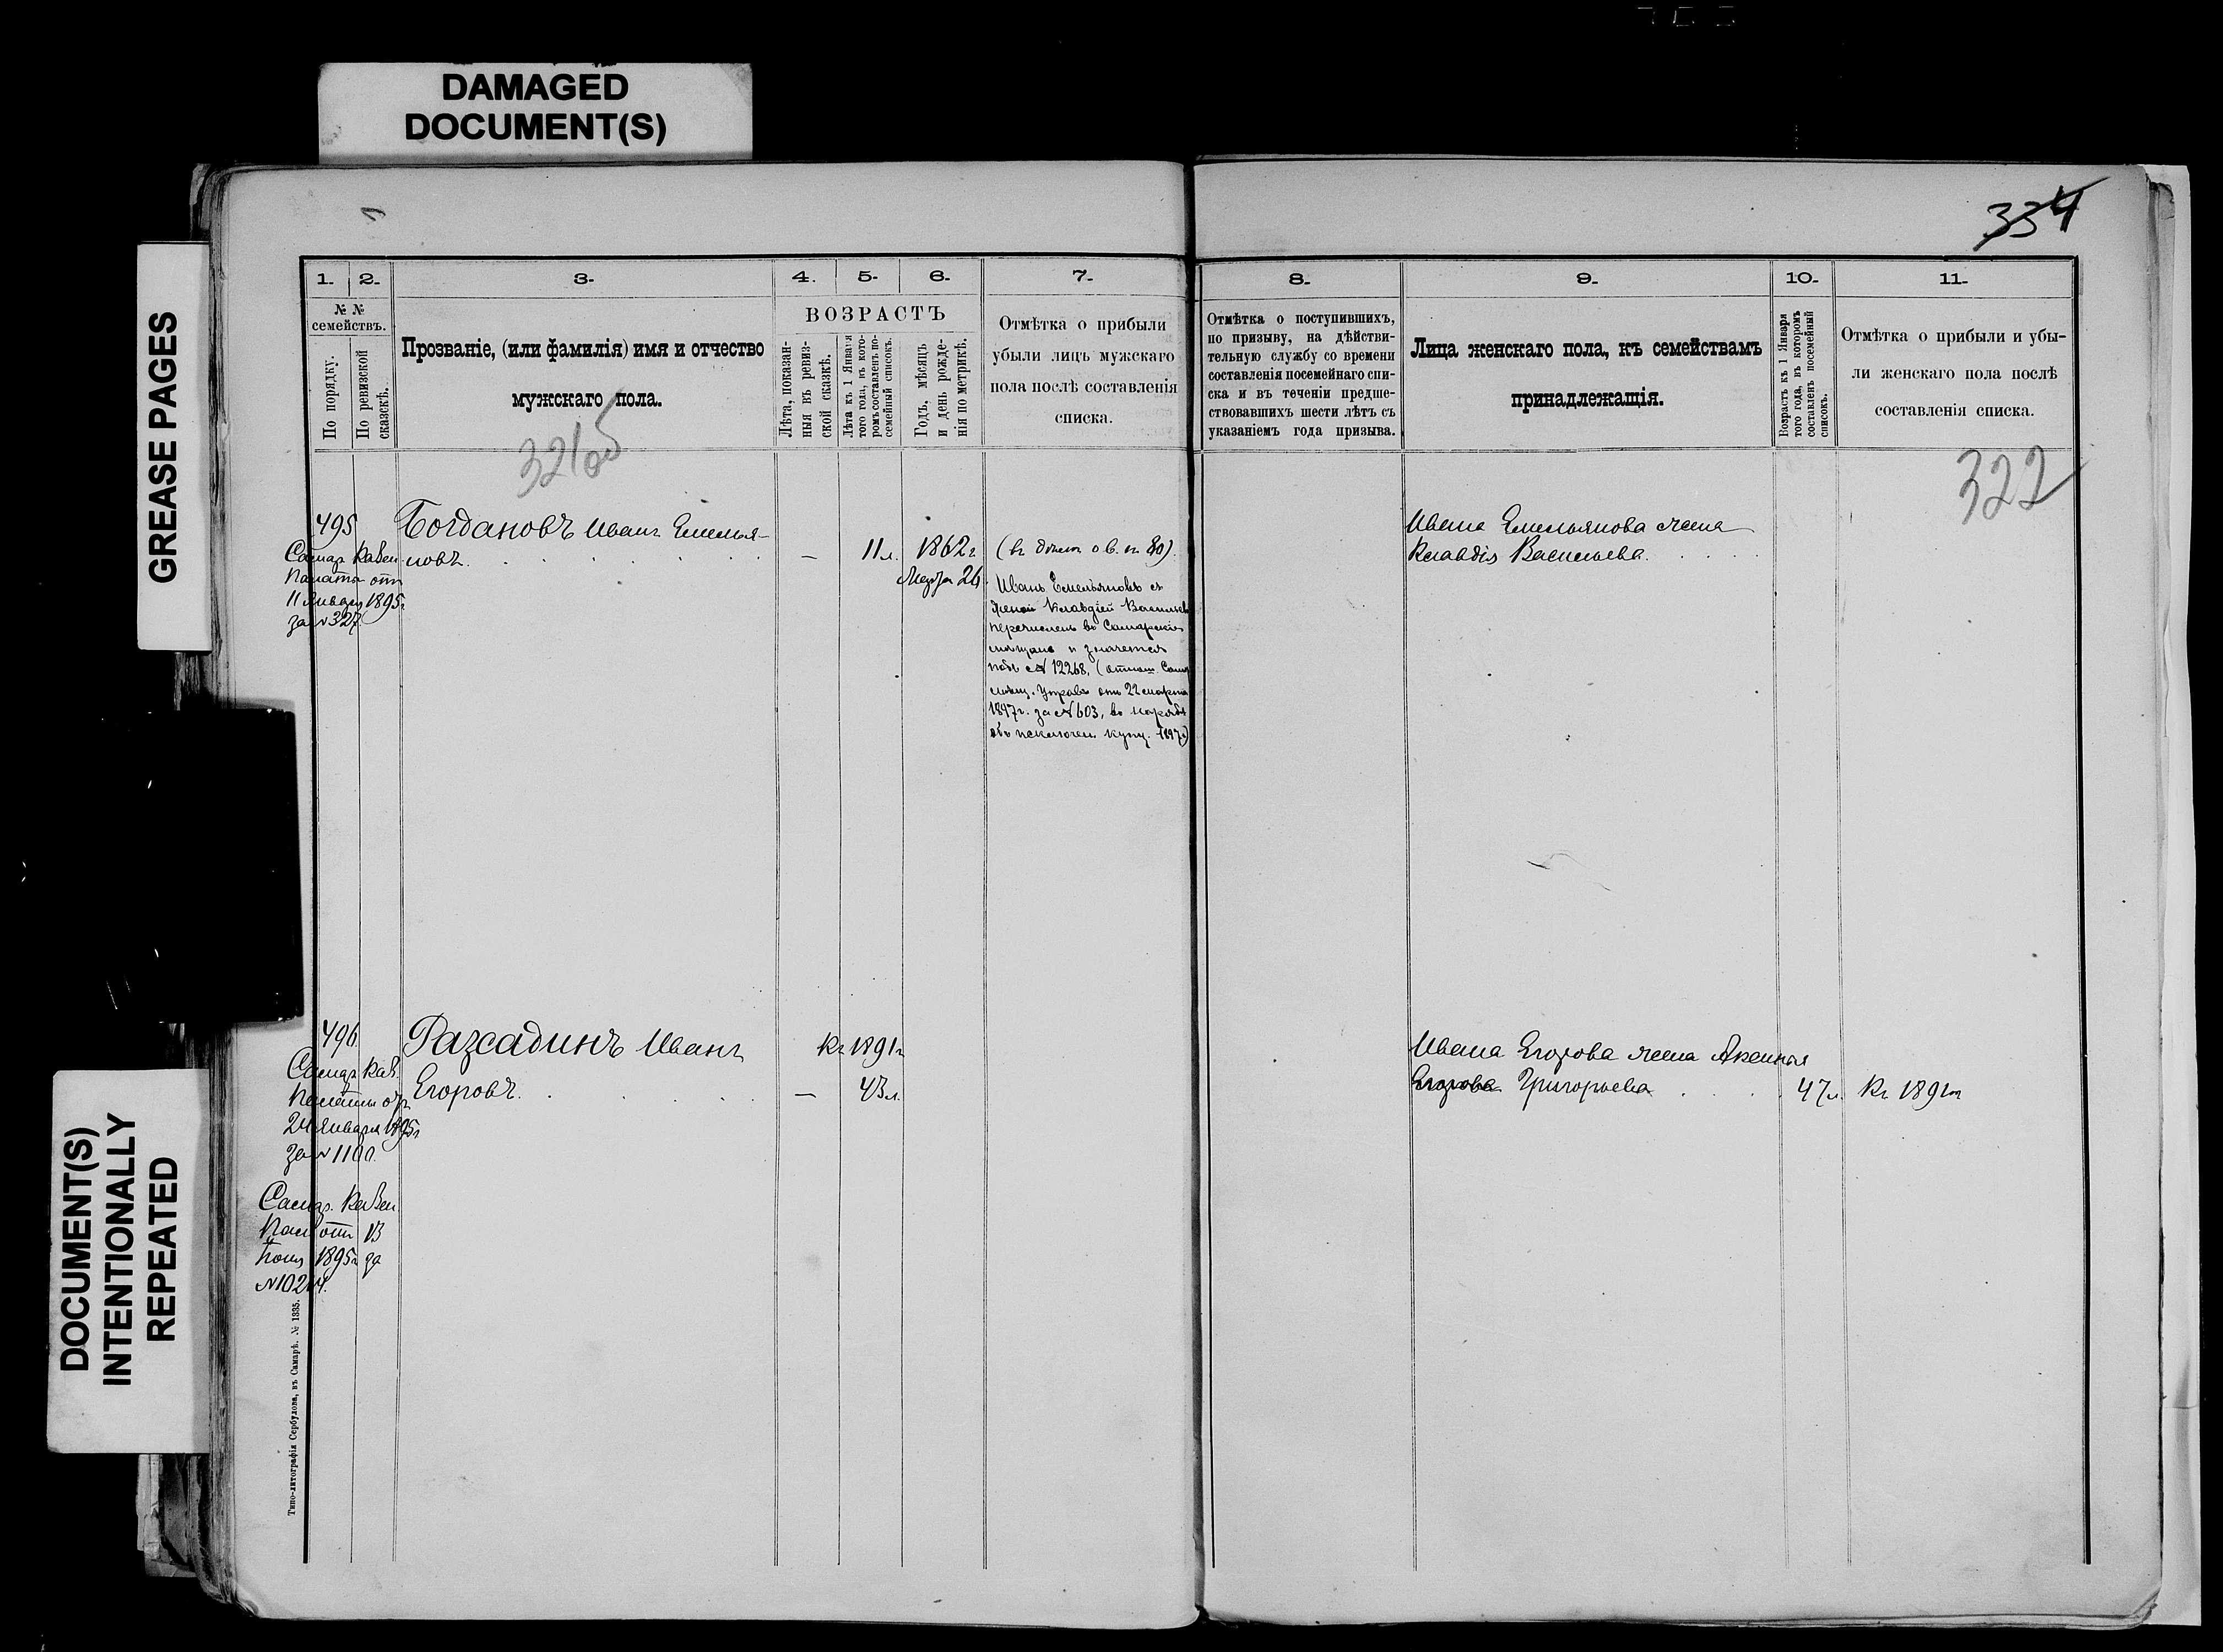 DAMAGED
DOCUMENT(S)
GREASE PAGES
DOCUMENT(S)
INTENTIONALLY
REPEATED
334
1. 2. 3. 4. 5. 6. 7.
№ №
семействъ.
По порядку.
По ревизской
сказкѣ.
Прозваніе, (или фамилія) имя и отчество
мужскаго пола.
ВОЗРАСТЪ
Лѣта, показан-
ныя въ ревиз-
ской сказкѣ.
Лѣта къ 1 Января
того года, въ кото-
ромъ составленъ по-
семейный списокъ.
Годъ, мѣсяцъ
и день рожде-
нія по метрикѣ.
Отмѣтка о прибыли
убыли лицъ мужскаго
пола послѣ составленія
списка.
495
Самар. Казен.
Палаты отъ
11 Января 1895г
за № 327.
Богдановъ Иванъ Емелья-
новъ.
—
11 л.
1862 г
Марта 26
Иванъ Емельяновъ съ
женой Клавдіей Васильев
перечисленъ въ Самарскіе
мѣщане и значится
подъ № 12268, (отнош. Сам
мѣщ. Управы отъ 22 марта
1897г. за № 603, въ нарядѣ
объ исключен. купц. 1897г)
496
Самар. Каз.
Палаты отъ
24 Января 1895г
за № 1100.
Самар. Казен
Пал отъ 13
1895г за
Разсадинъ Иванъ
Егоровъ.
—
Къ 1891г
43 л.
Типо-литографія Сербулова, въ Самарѣ. № 1335.
8. 9. 10. 11.
Отмѣтка о поступившихъ,
по призыву, на дѣйстви-
тельную службу со времени
составленія посемейнаго спи-
ска и въ теченіи предше-
ствовавшихъ шести лѣтъ съ
указаніемъ года призыва.
Лица женскаго пола, къ семействамъ
принадлежащія.
Возрастъ къ 1 Января
того года, въ которомъ
составленъ посемейный
списокъ.
Отмѣтка о прибыли и убы-
ли женскаго пола послѣ
составленія списка.
322
Ивана Емельянова жена
Клавдія Васильева.
Ивана Егорова жена Аксинья
Егорова Григорьева
47 л.
Къ 1891г